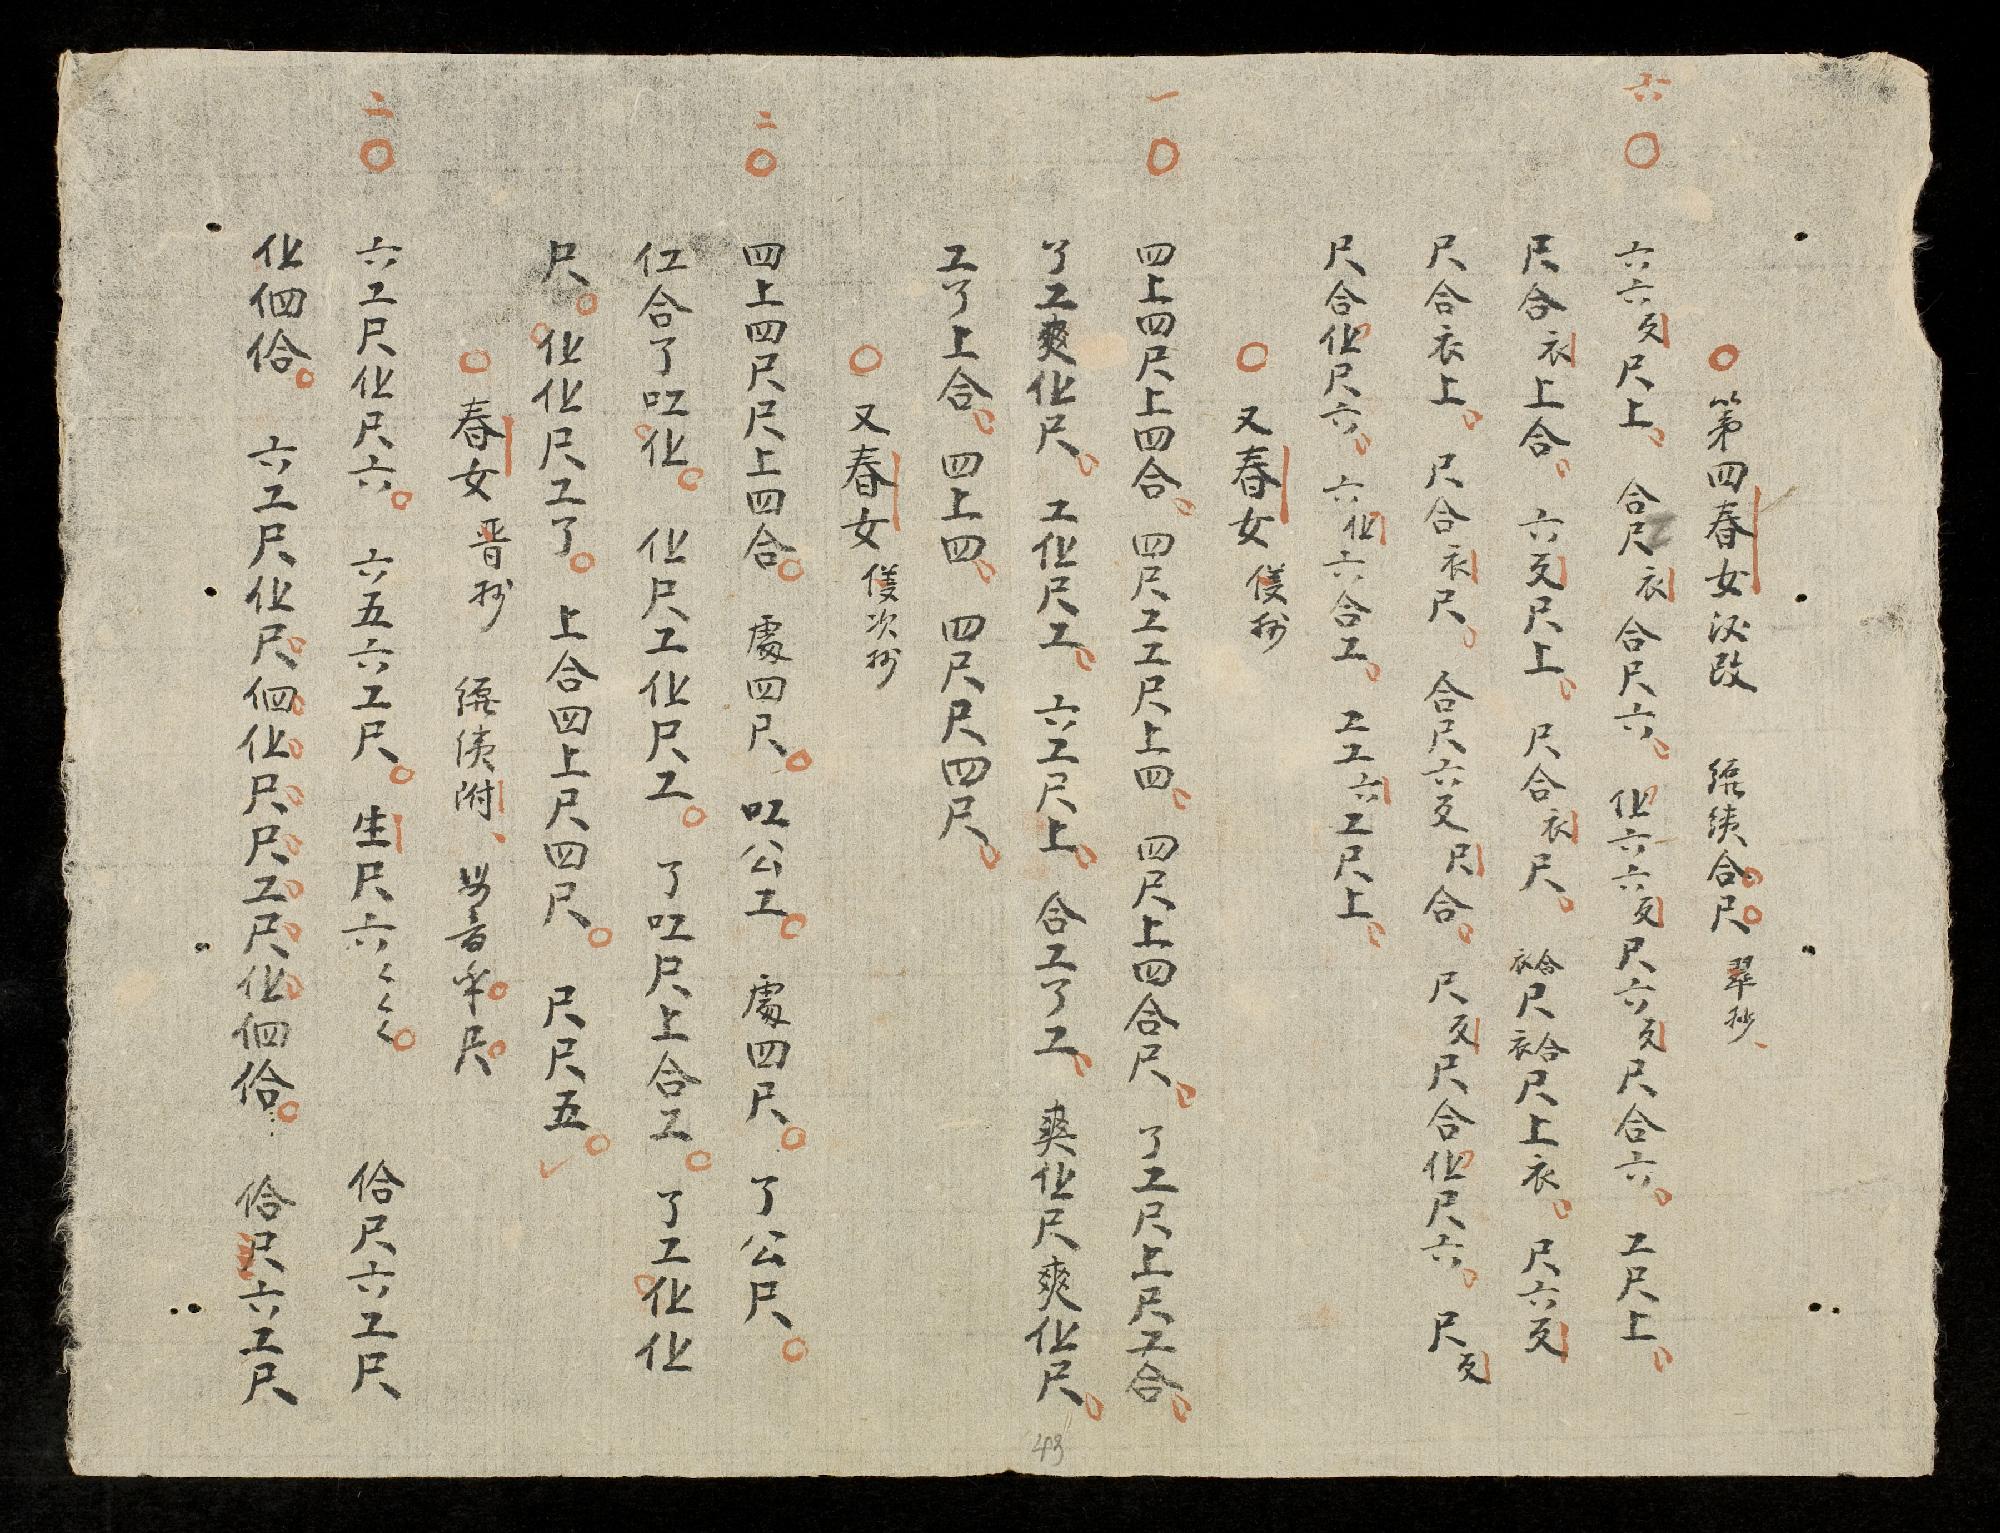 六
第四春女 改 合尺 翠抄
六六反尺上 合尺衣合尺六 化六六反尺六反尺合六 工尺上
尺合衣上合 六反尺上 尺合衣尺 衣合尺衣合尺上衣 尺六反
尺合衣上 尺合衣尺 合尺六反尺合 尺反尺合化尺六 尺反
尺合化尺六 六化六合工 工工六工尺上
又春女 抄
一
四上四尺上四合 四尺工工尺上四 四尺上四合尺 了工尺上尺工合
了工爽化尺 工化尺工 六工尺上 合工了工 爽化尺爽化尺
工了上合 四上四 四尺尺四尺
又春女 次抄
二
四上四尺尺上四合 處四尺 𠮙公工 處四尺 了公尺
仜合了𠮙化 化尺工化尺工 了𠮙尺上合工 了工化化
尺 化化尺工了 上合四上尺四尺 尺尺五
春女 晋抄 附 音 尺
二
六工尺化尺六 六五六工尺 生尺六くくく 佮尺六工尺
化伵佮 六工尺化尺伵化尺尺工尺化伵佮 佮尺六工尺
43